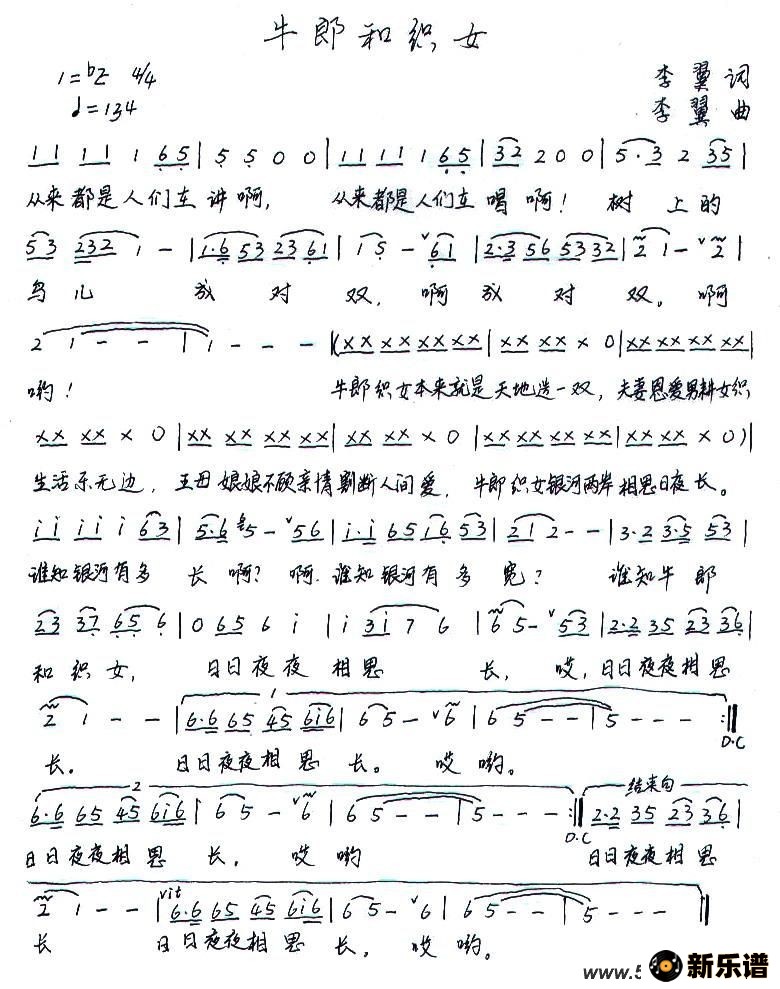 牛郎和织女
1=♭E 4/4
李翼 词
♩=134
李翼 曲
1 1 1 1 1 6 5 | 5 5 0 0 | 1 1 1 1 1 6 5 | 3 2 2 0 0 | 5·3 2 3 5 |
从来都是人们在讲啊， 从来都是人们在唱啊！ 树上的
5 3 2 3 2 1 - | 1·6 5 3 2 3 6 1 | 1 5 - ᵛ6 1 | 2·3 5 6 5 3 3 2 | 2 1 - ᵛ2 |
鸟儿 成对双，啊成对双。啊
2 1 - - | 1 - - - | (X X X X X X X X | X X X X X 0 | X X X X X X X X |
哟！ 牛郎织女本来就是天地造一双，夫妻恩爱男耕女织
X X X X X 0 | X X X X X X X X | X X X X X 0 | X X X X X X X X | X X X X X 0) |
生活乐无边，王母娘娘不顾亲情割断人间爱，牛郎织女银河两岸相思日夜长。
i i i i i 6 3 | 5·6 5 - ᵛ5 6 | i·i 6 5 i 6 5 3 | 2 1 2 - - | 3·2 3·5 5 3 |
谁知银河有多长啊？啊.谁知银河有多宽？ 谁知牛郎
2 3 3 7 6 5 6 | 0 6 5 6 i | i 3 i 7 6 | 6 5 - ᵛ5 3 | 2·2 3 5 2 3 3 6 |
和织女， 日日夜夜相思长，哎，日日夜夜相思
2 1 - - | 1 6·6 6 5 4 5 6 i 6 | 6 5 - ᵛ6 | 6 5 - - | 5 - - - :‖
D.C
长。 日日夜夜相思长。哎哟。
2 结束句
6·6 6 5 4 5 6 i 6 | 6 5 - ᵛ6 | 6 5 - - | 5 - - - :‖ 2·2 3 5 2 3 3 6 |
D.C
日日夜夜相思长，哎哟 日日夜夜相思
2 1 - - | vit 6·6 6 5 4 5 6 i 6 | 6 5 - ᵛ6 | 6 5 - - | 5 - - - ‖
长 日日夜夜相思长，哎哟。
www.5 新乐谱